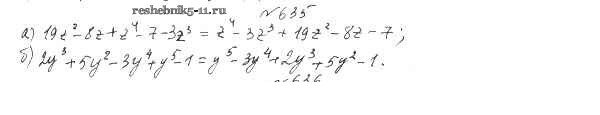 reshebnik5-11.ru
№635
а) 19z²-8z+z⁴-7-3z³ = z⁴-3z³+19z²-8z-7;
б) 2y³+5y²-3y⁴+y⁵-1 = y⁵-3y⁴+2y³+5y²-1.